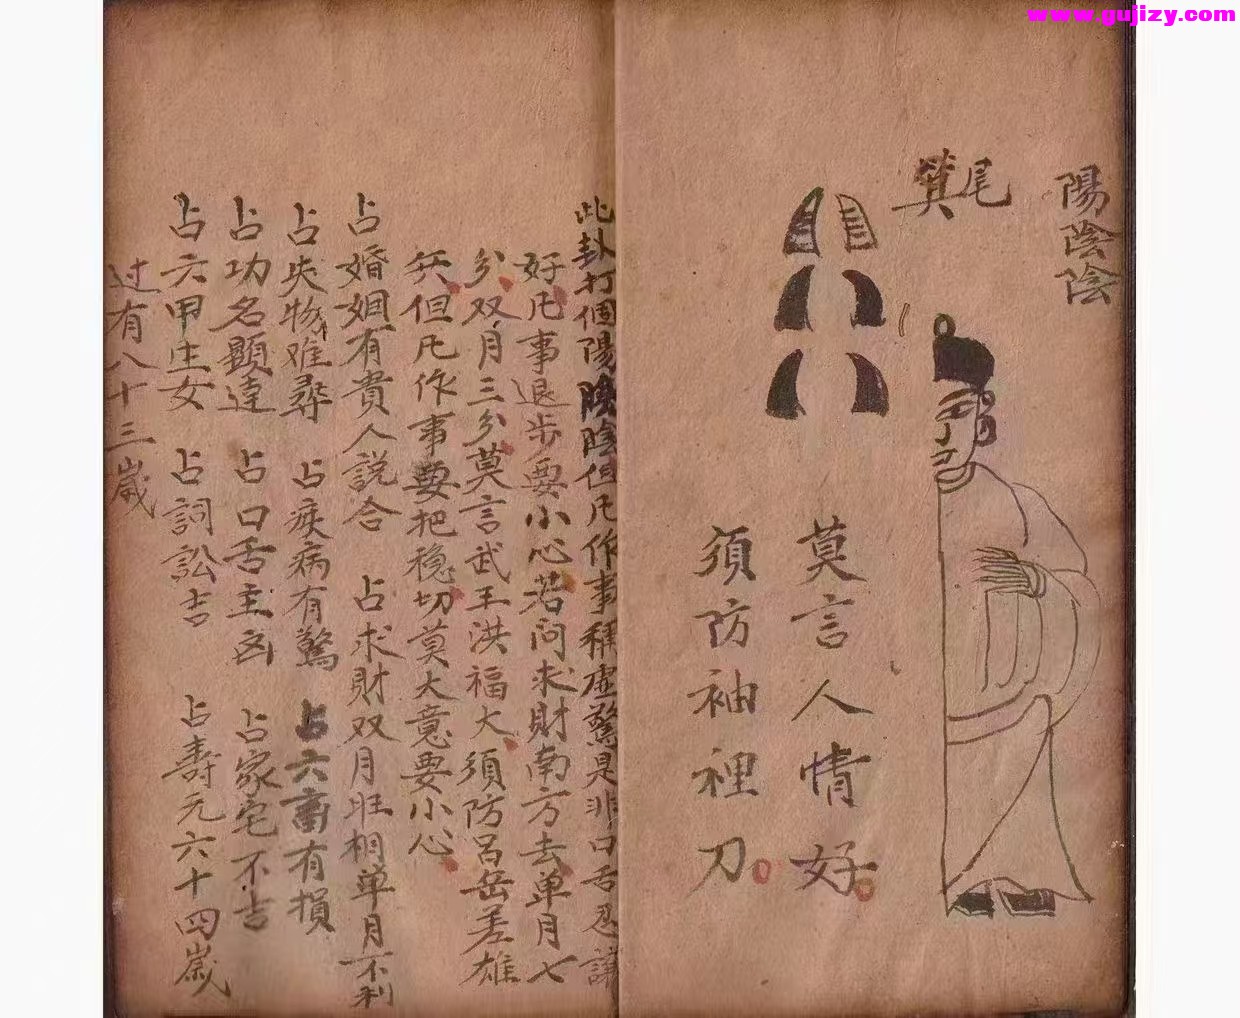 www.gujizy.com
陽陰陰
尾
箕
莫言人情好
須防袖裡刀
此卦打個陽陰陰但凡作事稱虚驚是非口舌忍讓
好凡事退步要小心若问求財南方去单月七
分双月三分莫言武王洪福大須防吕岳差雄
兵但凡作事要把稳切莫大意要小心
占婚姻有貴人説合 占求財双月旺相单月不利
占失物难尋 占疾病有驚 占六畜有損
占功名顕達 占口舌主凶 占家宅不吉
占六甲生女 占詞訟吉 占壽元六十四歲
过有八十三歲